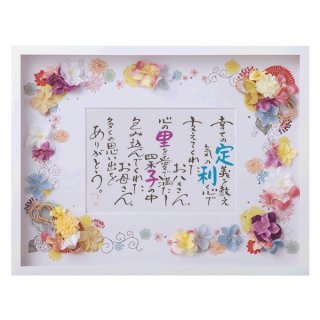 幸せの定義を教え
気の利く心で
支えてくれた
お父さん。
心の里を愛で満たし
四六子の中
包み込んでくれた
お母さん。
多くの思い出を
ありがとう。